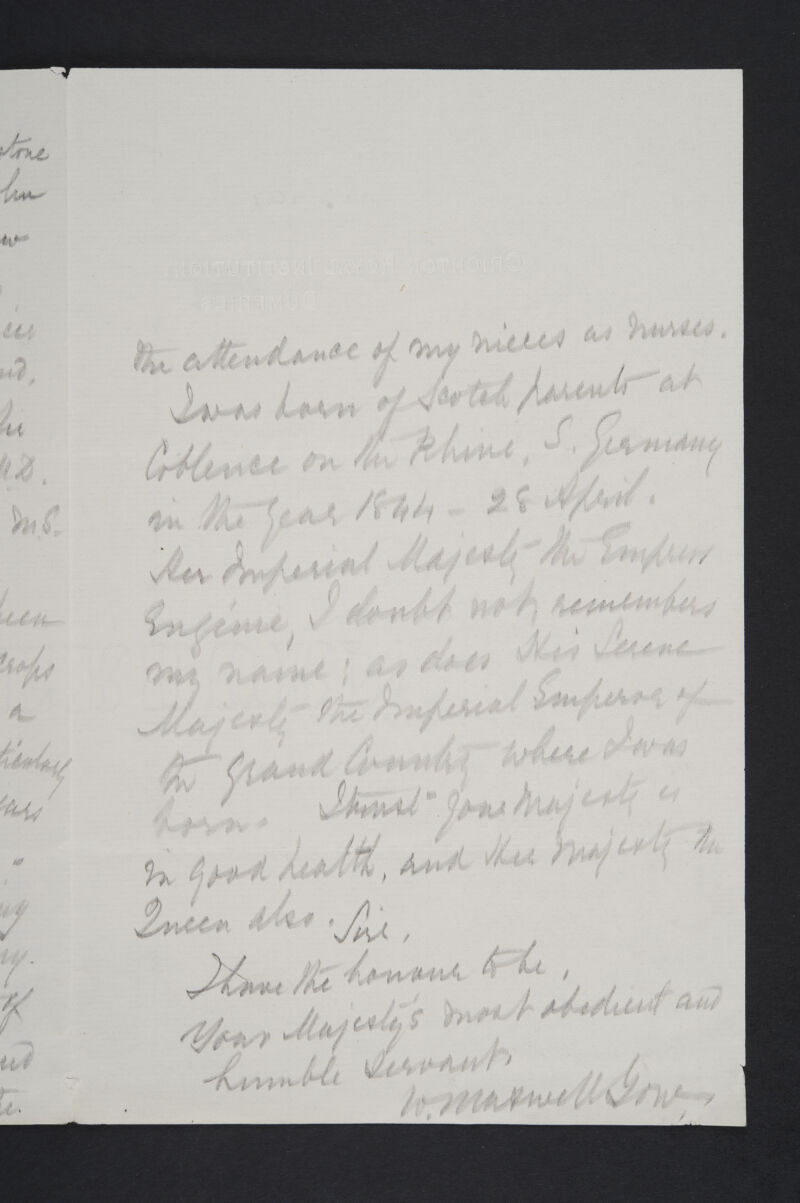 stone
hu
w
eer
nd,
he
M.D.
M.S.
been
crops
a
ticularly
ears
ng
ny.
of
ed
te.
CRICHTON ROYAL INSTITUTION
DUMFRIES
the attendance of my nieces as nurses.
I was born of Scotch parents at
Coblence on the Rhine, S. Germany
in the year 1844 – 28 April.
Her Imperial Majesty the Empress
Eugénie, I doubt not, remembers
my name; as does His Serene
Majesty the Imperial Emperor of
the Grand Country where I was
born. I trust your Majesty is
in good health, and Her Majesty the
Queen also. Sire,
I have the honour to be,
Your Majesty's most obedient and
humble servant,
W. Maxwell Gow,